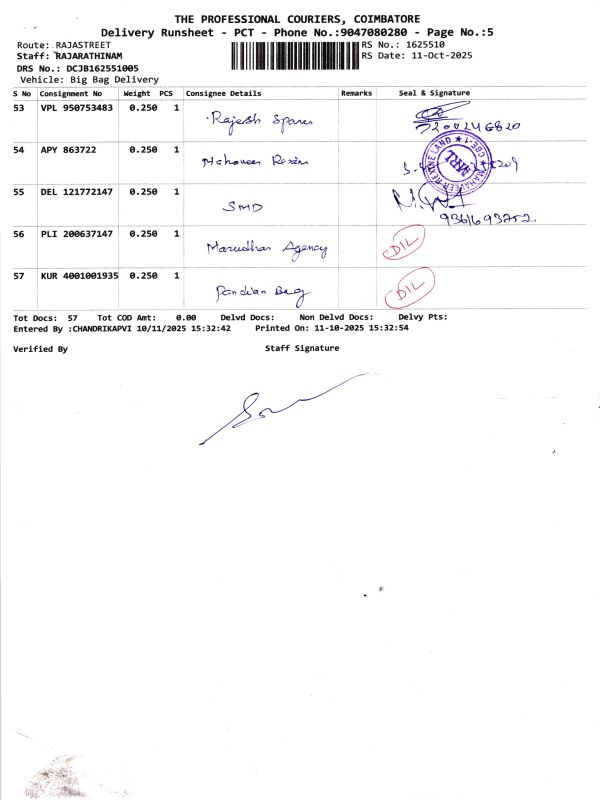 THE PROFESSIONAL COURIERS, COIMBATORE
Delivery Runsheet - PCT - Phone No.:9047080280 - Page No.:5
Route: RAJASTREET RS No.: 1625510
Staff: RAJARATHINAM RS Date: 11-Oct-2025
DRS No.: DCJB162551005
Vehicle: Big Bag Delivery
S No Consignment No Weight PCS Consignee Details Remarks Seal & Signature
53 VPL 950753483 0.250 1 Rajesh Spares
54 APY 863722 0.250 1 Mahaveer Rexin
MAHAVEER REXINE LAND ★ CBE-1 ★
MRL
55 DEL 121772147 0.250 1 SMD
9361693752.
56 PLI 200637147 0.250 1 Marudhar Agency DIL
57 KUR 4001001935 0.250 1 Pandian Bag DIL
Tot Docs: 57 Tot COD Amt: 0.00 Delvd Docs: Non Delvd Docs: Delvy Pts:
Entered By :CHANDRIKAPVI 10/11/2025 15:32:42 Printed On: 11-10-2025 15:32:54
Verified By Staff Signature